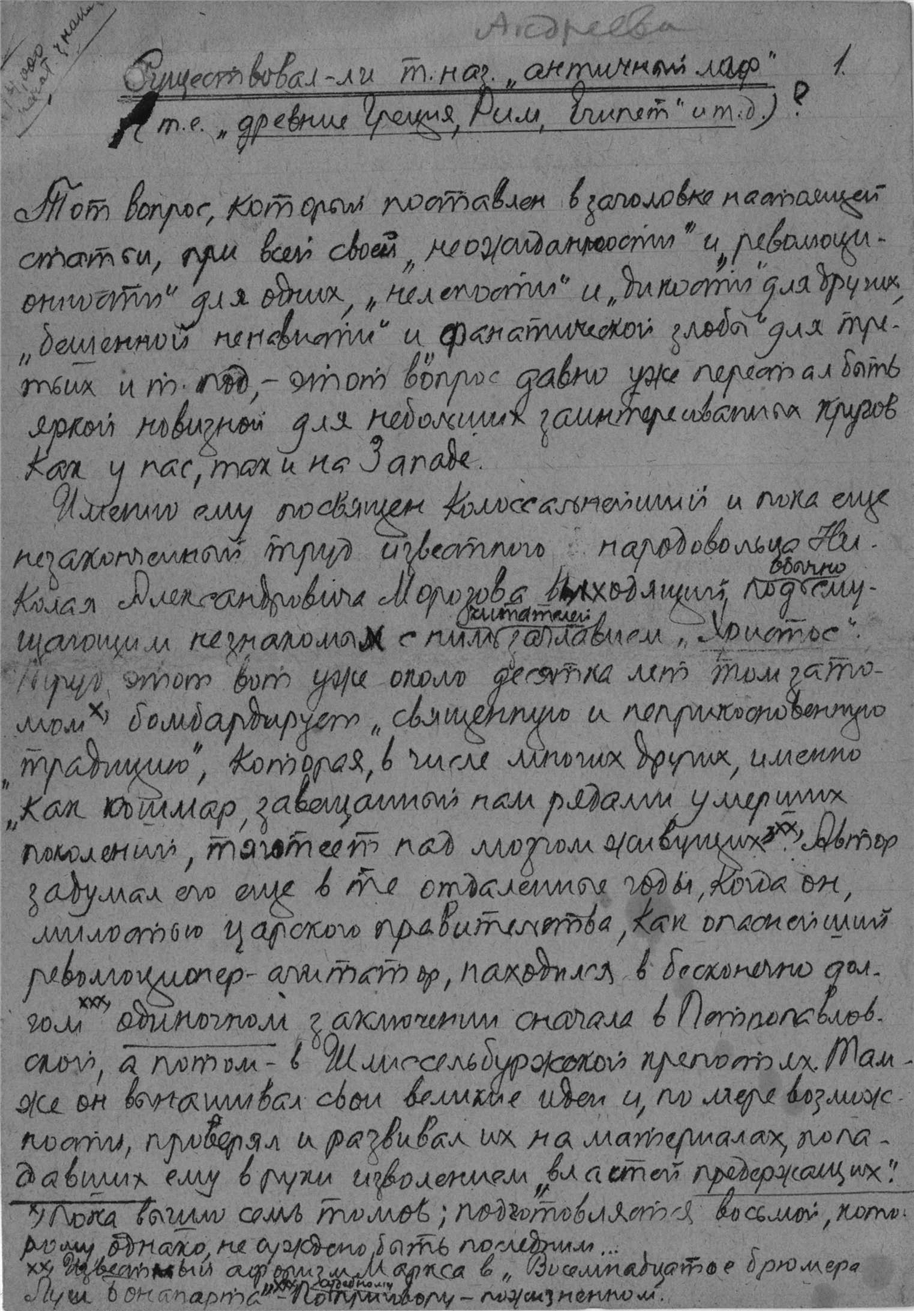 Андреева
14,000
печат. знака
Существовал-ли т. наз. „античный мир"
1.
(т.е. „древние Греция, Рим, Египет" и т.д.)?
Тот вопрос, который поставлен в заголовке настоящей
статьи, при всей своей „неожиданности" и „революци-
онности" для одних, „нелепости" и „дикости" для других,
„бешенной ненависти" и „фанатической злобы" для тре-
тьих и т. под, – этот вопрос давно уже перестал быть
яркой новизной для небольших заинтересованных кругов
как у нас, так и на Западе.
Именно ему посвящен колоссальнейший и пока еще
незаконченный труд известного народовольца Ни-
колая Александровича Морозова выходящий под обычно сму-
щающим незнакомых с ним читателей заглавием „Христос".
Труд этот вот уже около десятка лет том за то-
мом х) бомбардирует „священную и неприкосновенную
традицию", которая, в числе многих других, именно
„как кошмар, завещанный нам рядами умерших
поколений, тяготеет над мозгом живущих" хх). Автор
задумал его еще в те отдаленные годы, когда он,
милостью царского правительства, как опаснейший
революционер-агитатор, находился в бесконечно дол-
гом ххх) одиночном заключении сначала в Петропавлов-
ской, а потом – в Шлиссельбуржской крепостях. Там-
же он вынашивал свои великие идеи и, по мере возмож-
ности, проверял и развивал их на материалах, попа-
давших ему в руки изволением „властей предержащих".
х) Пока вышло семь томов; подготовляется восьмой, кото-
рому, однако, не суждено быть последним...
хх) Известный афоризм Маркса в „Восемнадцатое брюмера
Луи Бонапарта" ххх) – По судебному приговору – пожизненном.